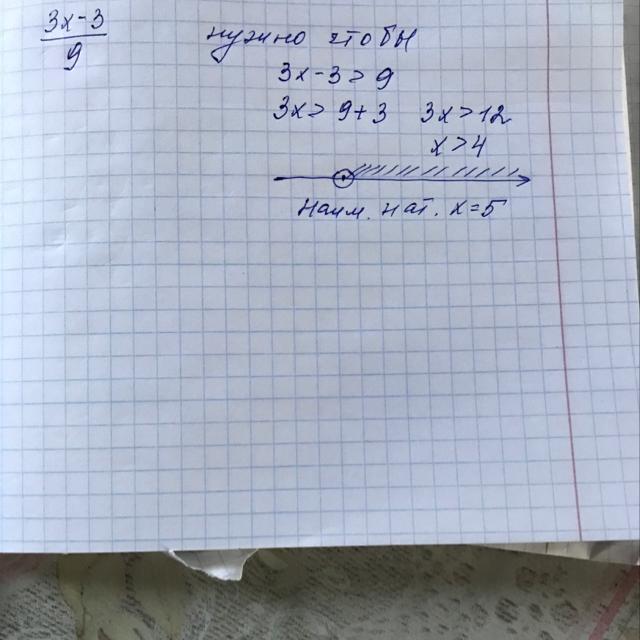 3x-3
9
нужно чтобы
3x-3>9
3x> 9+3 3x>12
x>4
Наим. нат. x=5